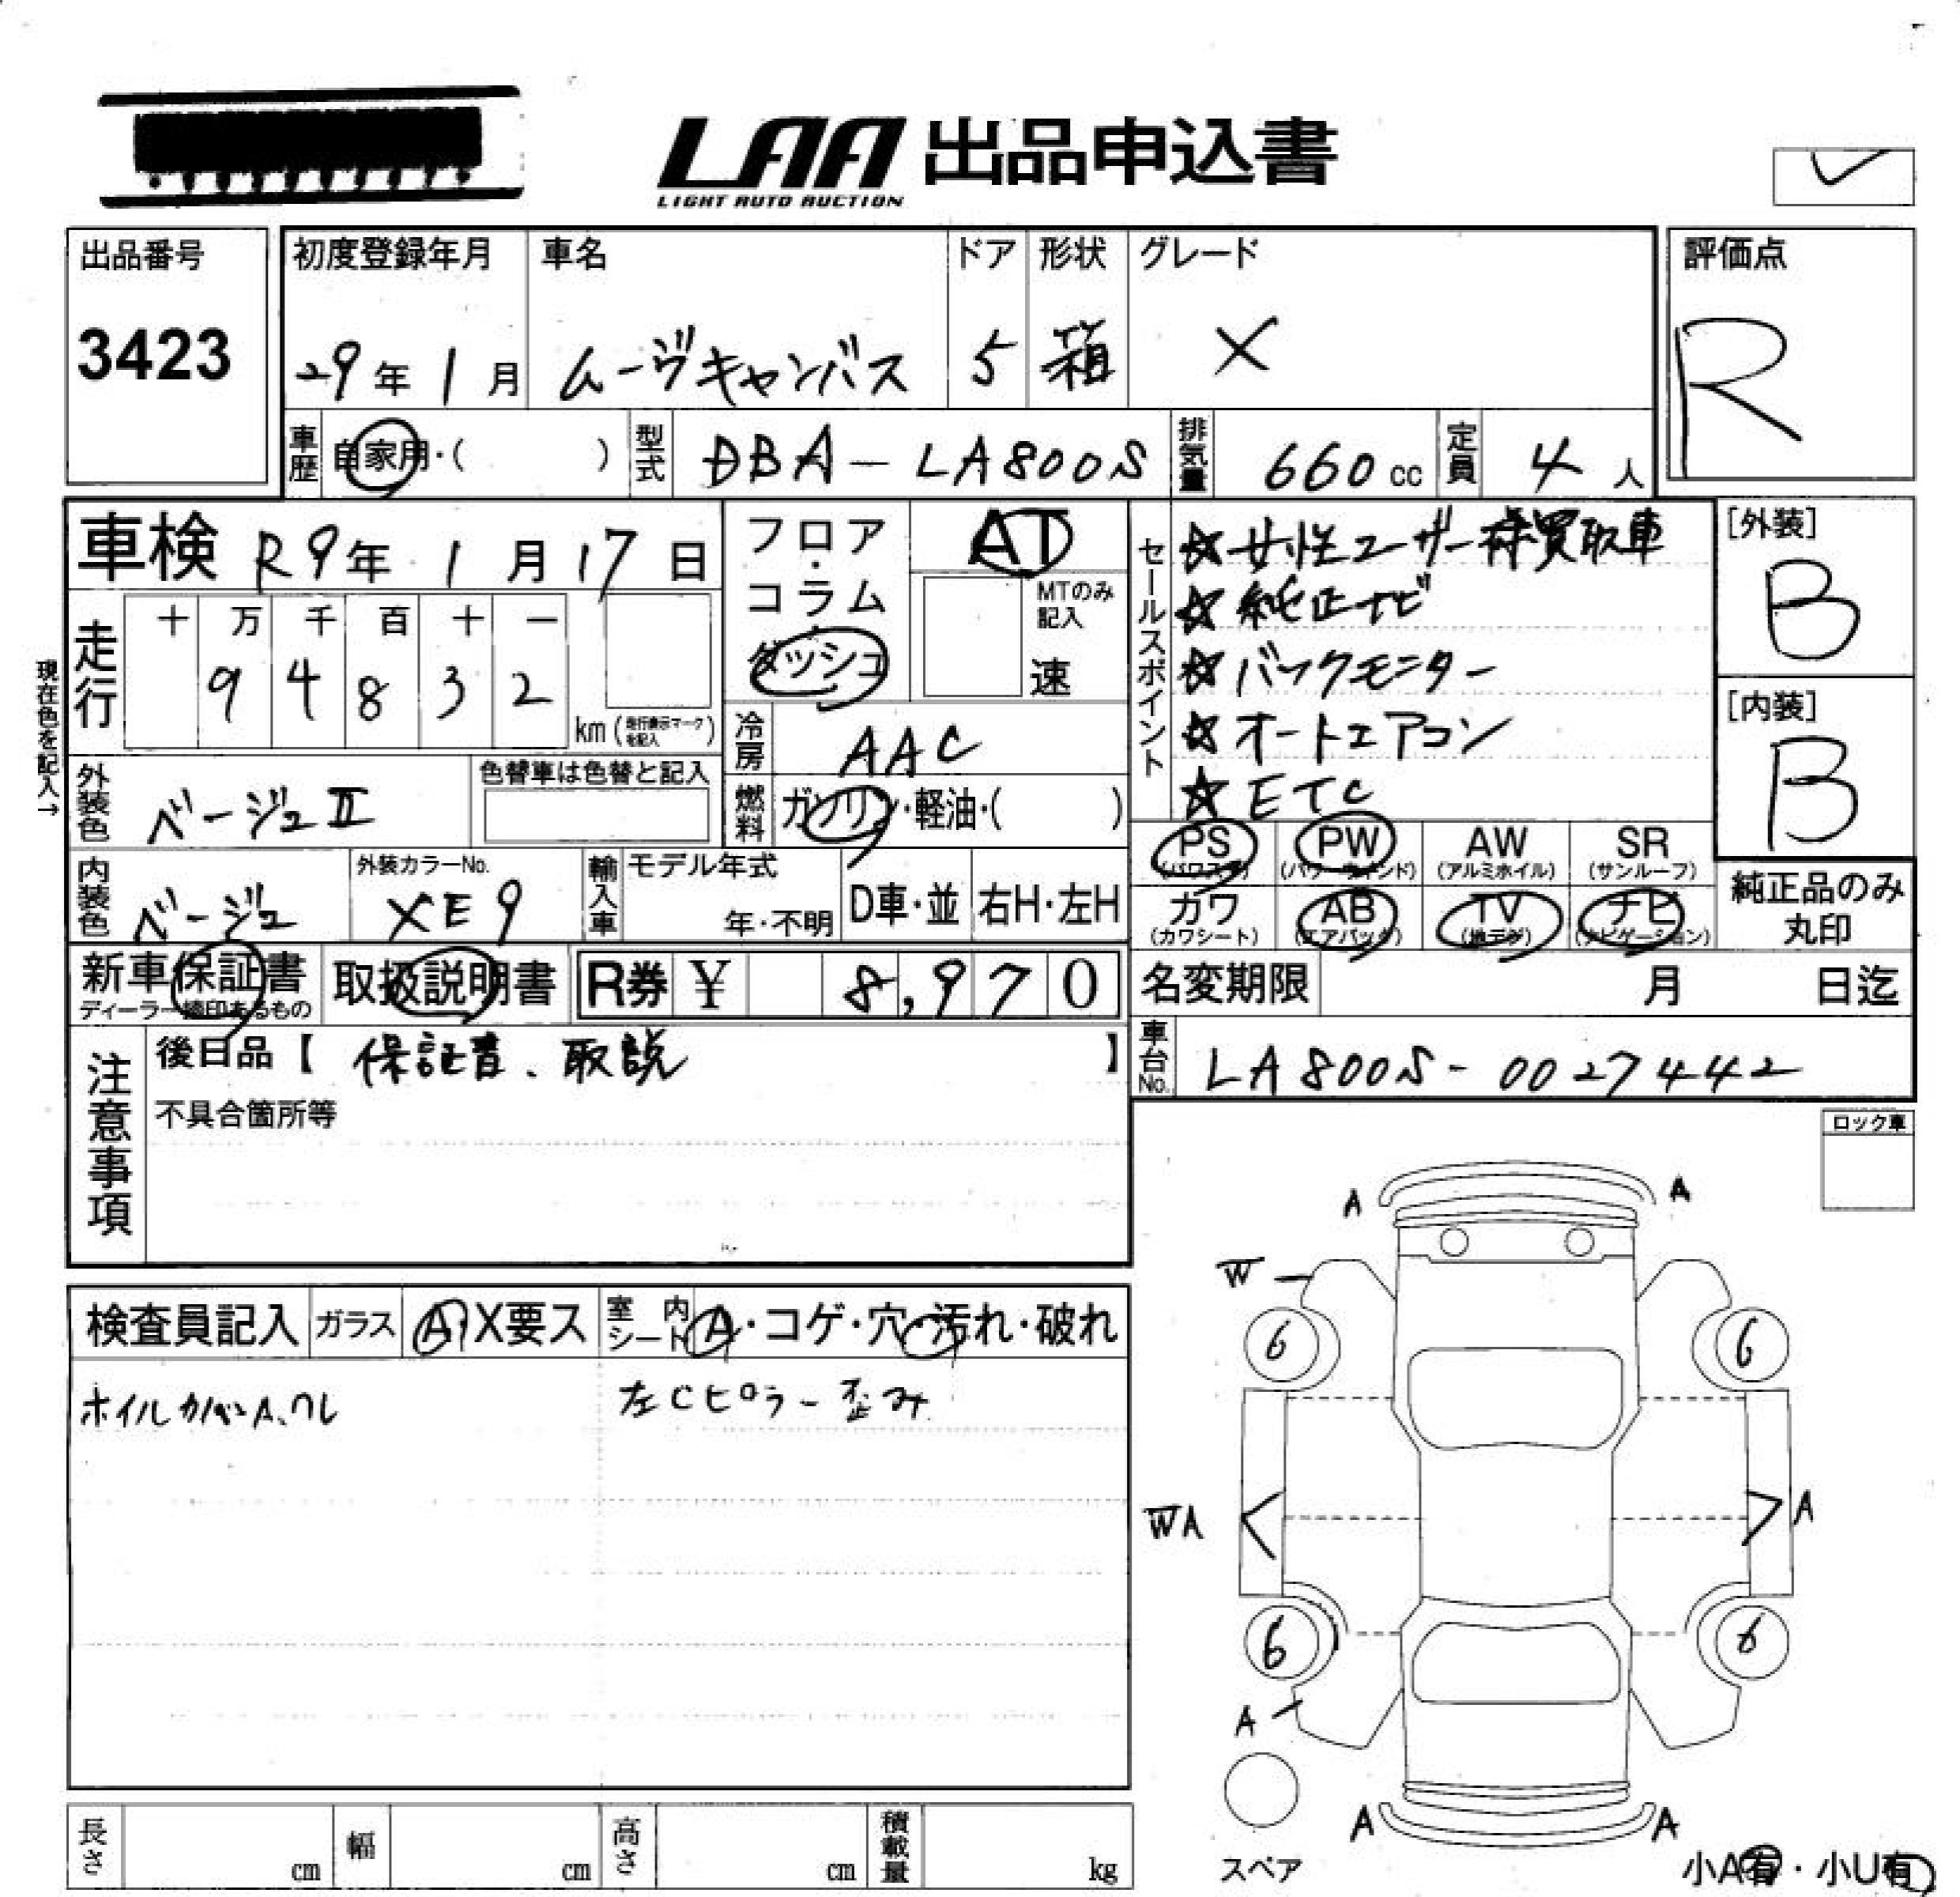 LAA 出品申込書
LIGHT AUTO AUCTION
出品番号
3423
初度登録年月
29年 1月
車名
ムーヴキャンバス
ドア
5
形状
箱
グレード
X
評価点
R
車歴 自家用・( )
型式 DBA-LA800S
排気量 660cc
定員 4人
車検 R9年 1月17日
フロア・コラム・ダッシュ
AT
MTのみ記入
速
セールスポイント
☆女性ユーザー様買取車
☆純正ナビ
☆バックモニター
☆オートエアコン
☆ETC
[外装]
B
[内装]
B
現在色を記入→
走行
十 万 千 百 十 一
9 4 8 3 2
km(走行表示マークを記入)
冷房 AAC
外装色 ベージュⅡ
色替車は色替と記入
燃料 ガソリン・軽油・( )
PS (パワステ)
PW (パワーウインド)
AW (アルミホイル)
SR (サンルーフ)
カワ (カワシート)
AB (エアバック)
TV (地デジ)
ナビ (ナビゲーション)
純正品のみ丸印
内装色 ベージュ
外装カラーNo.
XE9
輸入車
モデル年式
年・不明
D車・並
右H・左H
新車保証書
取扱説明書
R券 ¥ 8,970
名変期限 月 日迄
注意事項
後日品【 保証書、取説 】
不具合箇所等
車台No. LA800S-0027442
ロック車
検査員記入
ガラス A X要ス
室内シート A・コゲ・穴・汚れ・破れ
ホイルカバーA、ワレ
左Cピラー歪み
A A
W
6 6
WA A
6 6
A
スペア
A A
小A有・小U有
長さ cm
幅 cm
高さ cm
積載量 kg